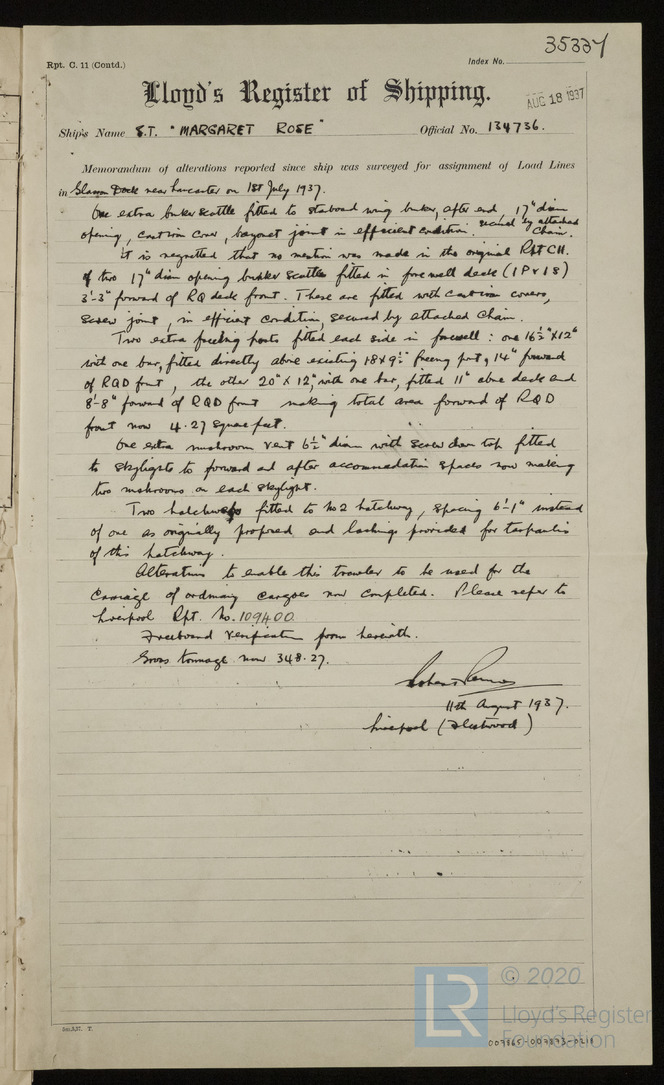 35337
Rpt. C. 11 (Contd.)
Index No.
Lloyd's Register of Shipping.
AUG 18 1937
Ship's Name S.T. "MARGARET ROSE" Official No. 134736.
Memorandum of alterations reported since ship was surveyed for assignment of Load Lines
in Glasson Dock near Lancaster on 1st July 1937.
One extra bunker scuttle fitted to starboard wing bunker, after end, 17" diam
opening, cast iron cover, bayonet joint in efficient condition, secured by attached
chain.
It is regretted that no mention was made in the original Rpt C11.
of two 17" diam opening bunker scuttles fitted in fore well deck (1P & 1S)
3'-3" forward of RQ deck front. These are fitted with cast iron covers,
screw joint, in efficient condition, secured by attached chain.
Two extra freeing ports fitted each side in forewell: one 16½" x 12"
with one bar, fitted directly above existing 18 x 9½" freeing port, 14" forward
of RQD front, the other 20" x 12", with one bar, fitted 11" above deck and
8'-8" forward of RQD front making total area forward of RQD
front now 4.27 square feet.
One extra mushroom vent 6½" diam with screw down top fitted
to skylights to forward and after accommodation spaces now making
two mushrooms on each skylight.
Two hatchwebs fitted to No 2 hatchway, spacing 6'-1" instead
of one as originally proposed and lashings provided for tarpaulin
of this hatchway.
Alterations to enable this trawler to be used for the
carriage of ordinary cargoes now completed. Please refer to
Liverpool Rpt. No. 109400
Freeboard verification form herewith.
Gross tonnage now 348.27.
11th August 1937.
Liverpool (Fleetwood)
LR © 2020
Lloyd's Register
Foundation